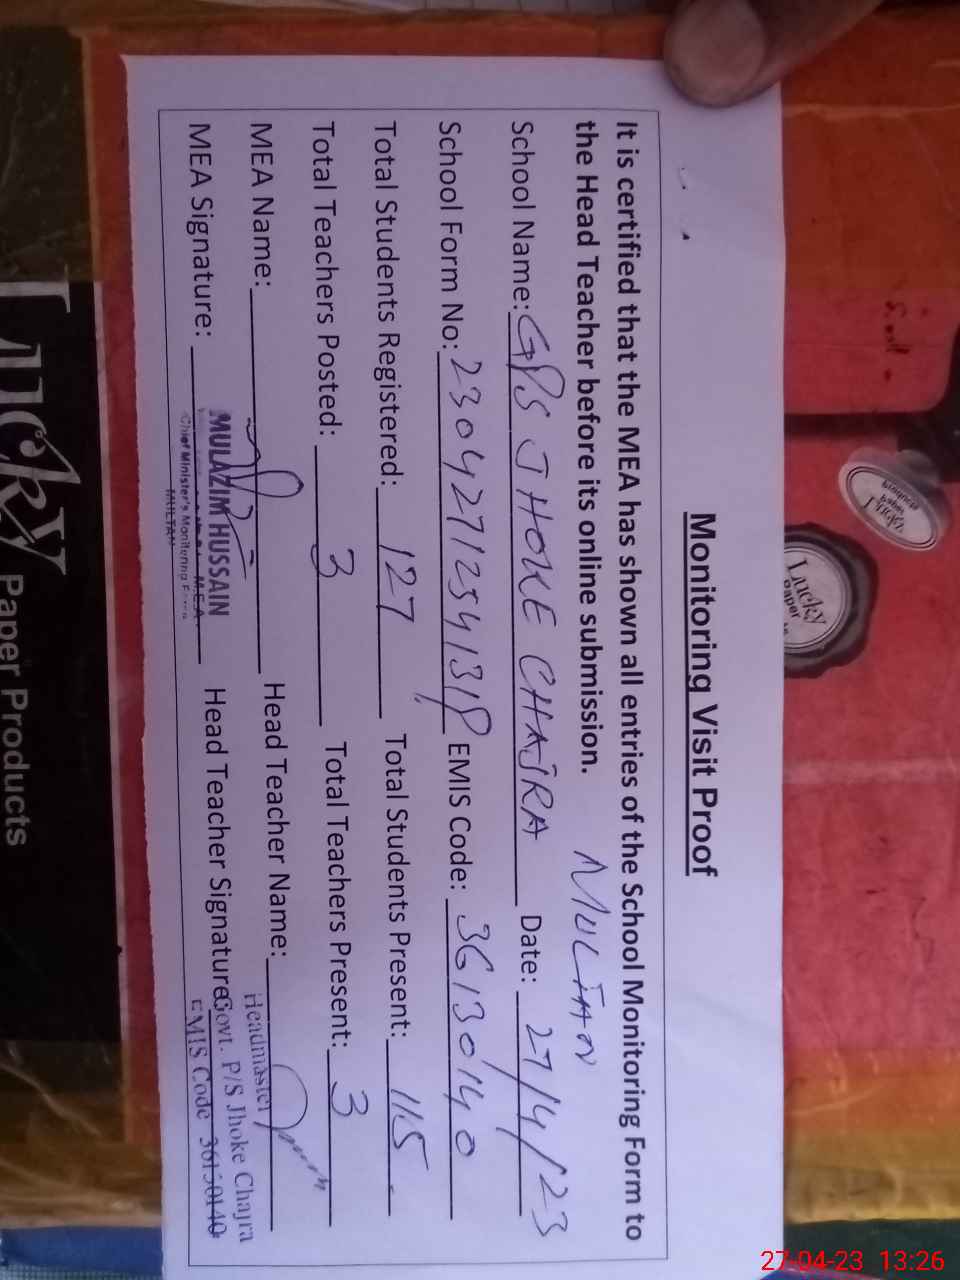 Monitoring Visit Proof
It is certified that the MEA has shown all entries of the School Monitoring Form to
the Head Teacher before its online submission. MULTAN
School Name: GPS JHOKE CHAJRA Date: 27/4/23
School Form No: EMIS Code: 36130140
Total Students Registered: 127 Total Students Present: 115
Total Teachers Posted: 3 Total Teachers Present: 3
MEA Name: Head Teacher Name:
MEA Signature: Head Teacher Signature
MULAZIM HUSSAIN
M.E.A
Chief Minister's Monitoring Force
MULTAN
Headmaster
Govt. P/S Jhoke Chajra
EMIS Code 36130140
Lucky
Paper Products
Lucky
Paper
27-04-23 13:26